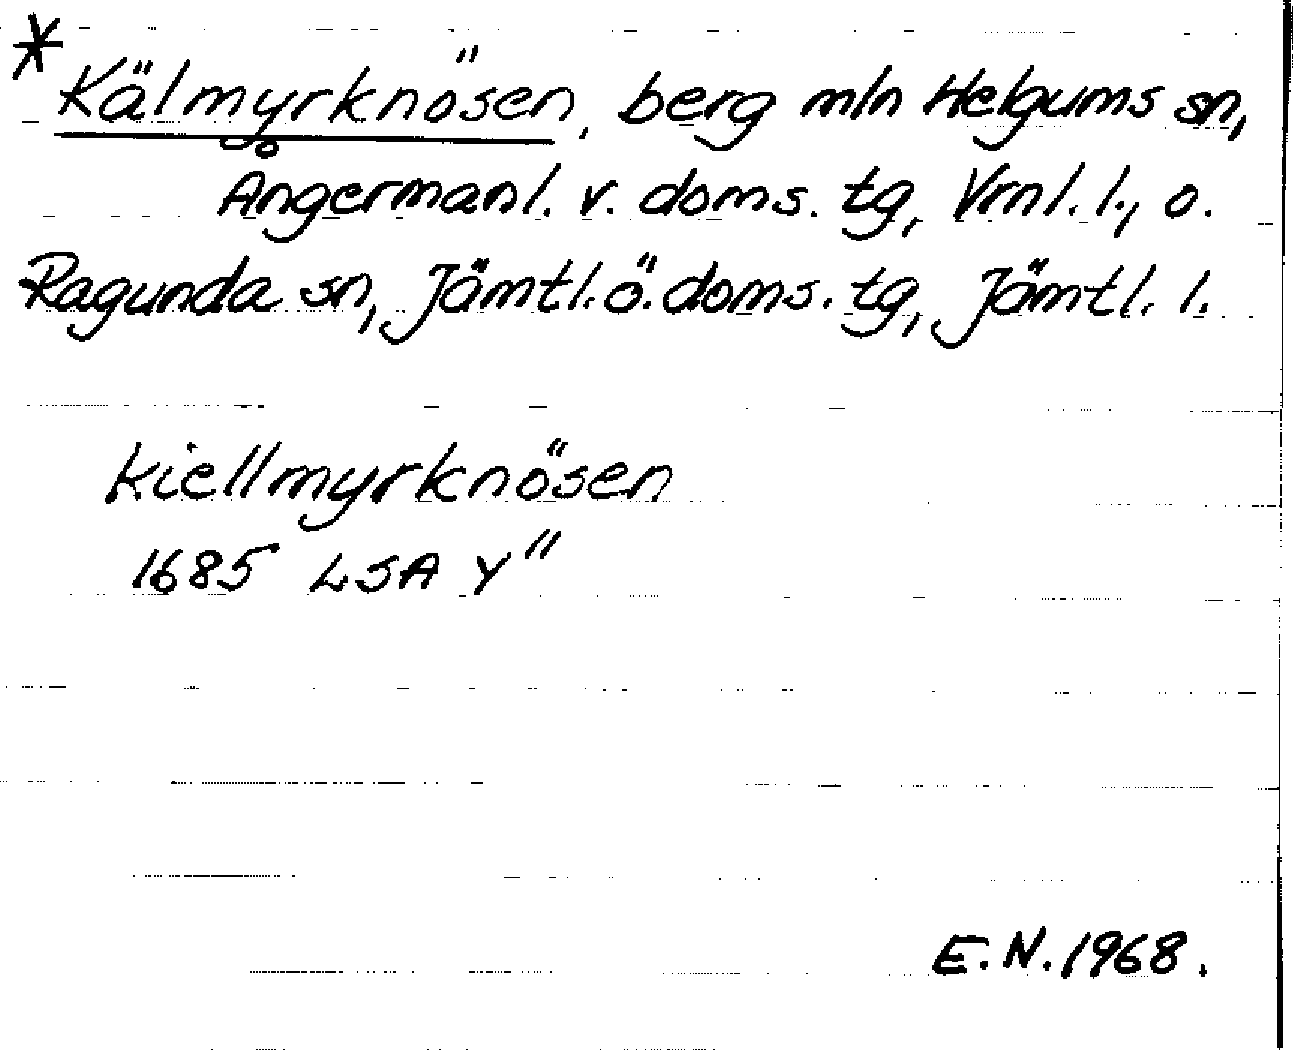 * Kälmyrknösen, berg mln Helgums sn,
Ångermanl. v. doms. tg, Vrnl. l., o.
Ragunda sn, Jämtl. ö. doms. tg, Jämtl. l.
Kiellmyrknösen
1685 LSA Y"
E. N. 1968.